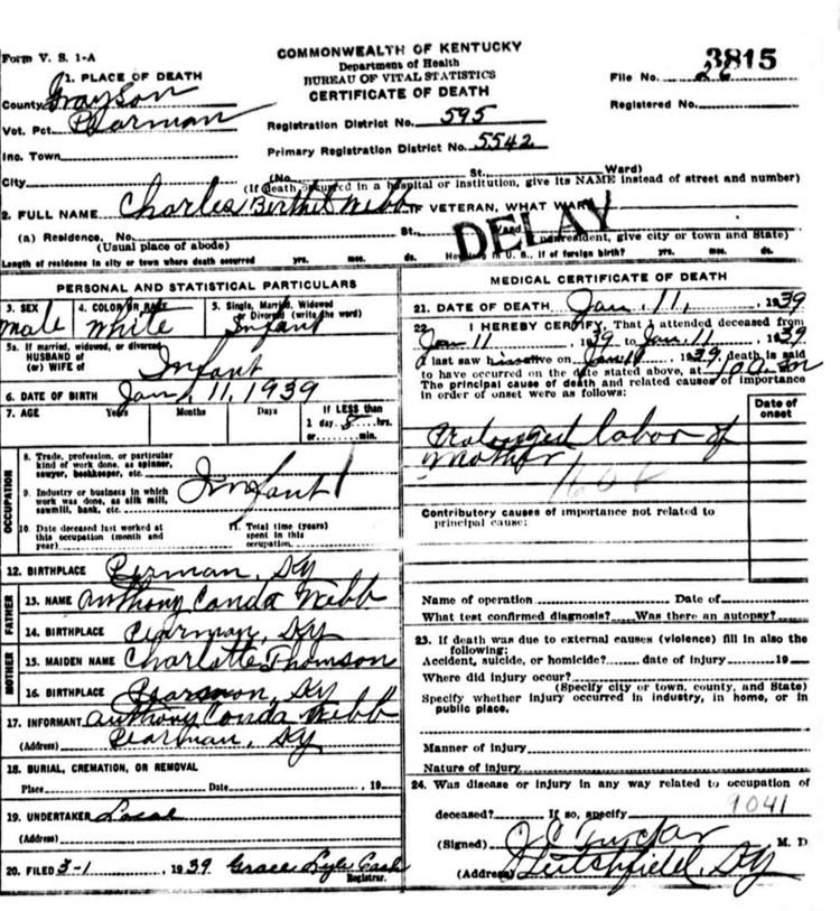 Form V. S. 1-A
COMMONWEALTH OF KENTUCKY
Department of Health
BUREAU OF VITAL STATISTICS
CERTIFICATE OF DEATH
3815
File No.
Registered No.
1. PLACE OF DEATH
County Grayson
Vot. Pct. Pearman
Registration District No. 595
Primary Registration District No. 5542
Inc. Town
City (No. St. Ward)
(If death occurred in a hospital or institution, give its NAME instead of street and number)
2. FULL NAME Charles Webb IF VETERAN, WHAT WAR?
DELAY
(a) Residence, No. St., Ward
(Usual place of abode) nonresident, give city or town and State)
Length of residence in city or town where death occurred yrs. mos. ds. How long in U. S., if of foreign birth? yrs. mos. ds.
PERSONAL AND STATISTICAL PARTICULARS
3. SEX 4. COLOR OR RACE 5. Single, Married, Widowed
or Divorced (write the word)
male white Infant
5a. If married, widowed, or divorced
HUSBAND of
(or) WIFE of Infant
6. DATE OF BIRTH Jan. 11, 1939
7. AGE Years Months Days If LESS than
1 day 5 hrs.
or min.
OCCUPATION
8. Trade, profession, or particular
kind of work done, as spinner,
sawyer, bookkeeper, etc.
Infant
9. Industry or business in which
work was done, as silk mill,
sawmill, bank, etc.
10. Date deceased last worked at
this occupation (month and
year)
11. Total time (years)
spent in this
occupation
12. BIRTHPLACE Pearman, Ky
FATHER
13. NAME Anthony Conda Webb
14. BIRTHPLACE Pearman, Ky
MOTHER
15. MAIDEN NAME Charlotte Thomson
16. BIRTHPLACE Ky
17. INFORMANT Anthony Conda Webb
(Address) Pearman, Ky
18. BURIAL, CREMATION, OR REMOVAL
Place Date , 19
19. UNDERTAKER Local
(Address)
20. FILED 3-1 , 1939 Grace Lyle Cash
Registrar.
MEDICAL CERTIFICATE OF DEATH
21. DATE OF DEATH Jan. 11, , 1939
22. I HEREBY CERTIFY, That I attended deceased from
Jan 11 , 1939 to Jan. 11 , 1939
I last saw h alive on , 1939, death is said
to have occurred on the date stated above, at 10 a. m
The principal cause of death and related causes of importance
in order of onset were as follows:
Date of
onset
Prolonged labor of
mother
Contributory causes of importance not related to
principal cause:
Name of operation Date of
What test confirmed diagnosis? Was there an autopsy?
23. If death was due to external causes (violence) fill in also the
following:
Accident, suicide, or homicide? date of injury 19
Where did injury occur?
(Specify city or town, county, and State)
Specify whether injury occurred in industry, in home, or in
public place.
Manner of injury
Nature of injury
24. Was disease or injury in any way related to occupation of
deceased? If so, specify
9041
(Signed) M. D
(Address) Leitchfield, Ky